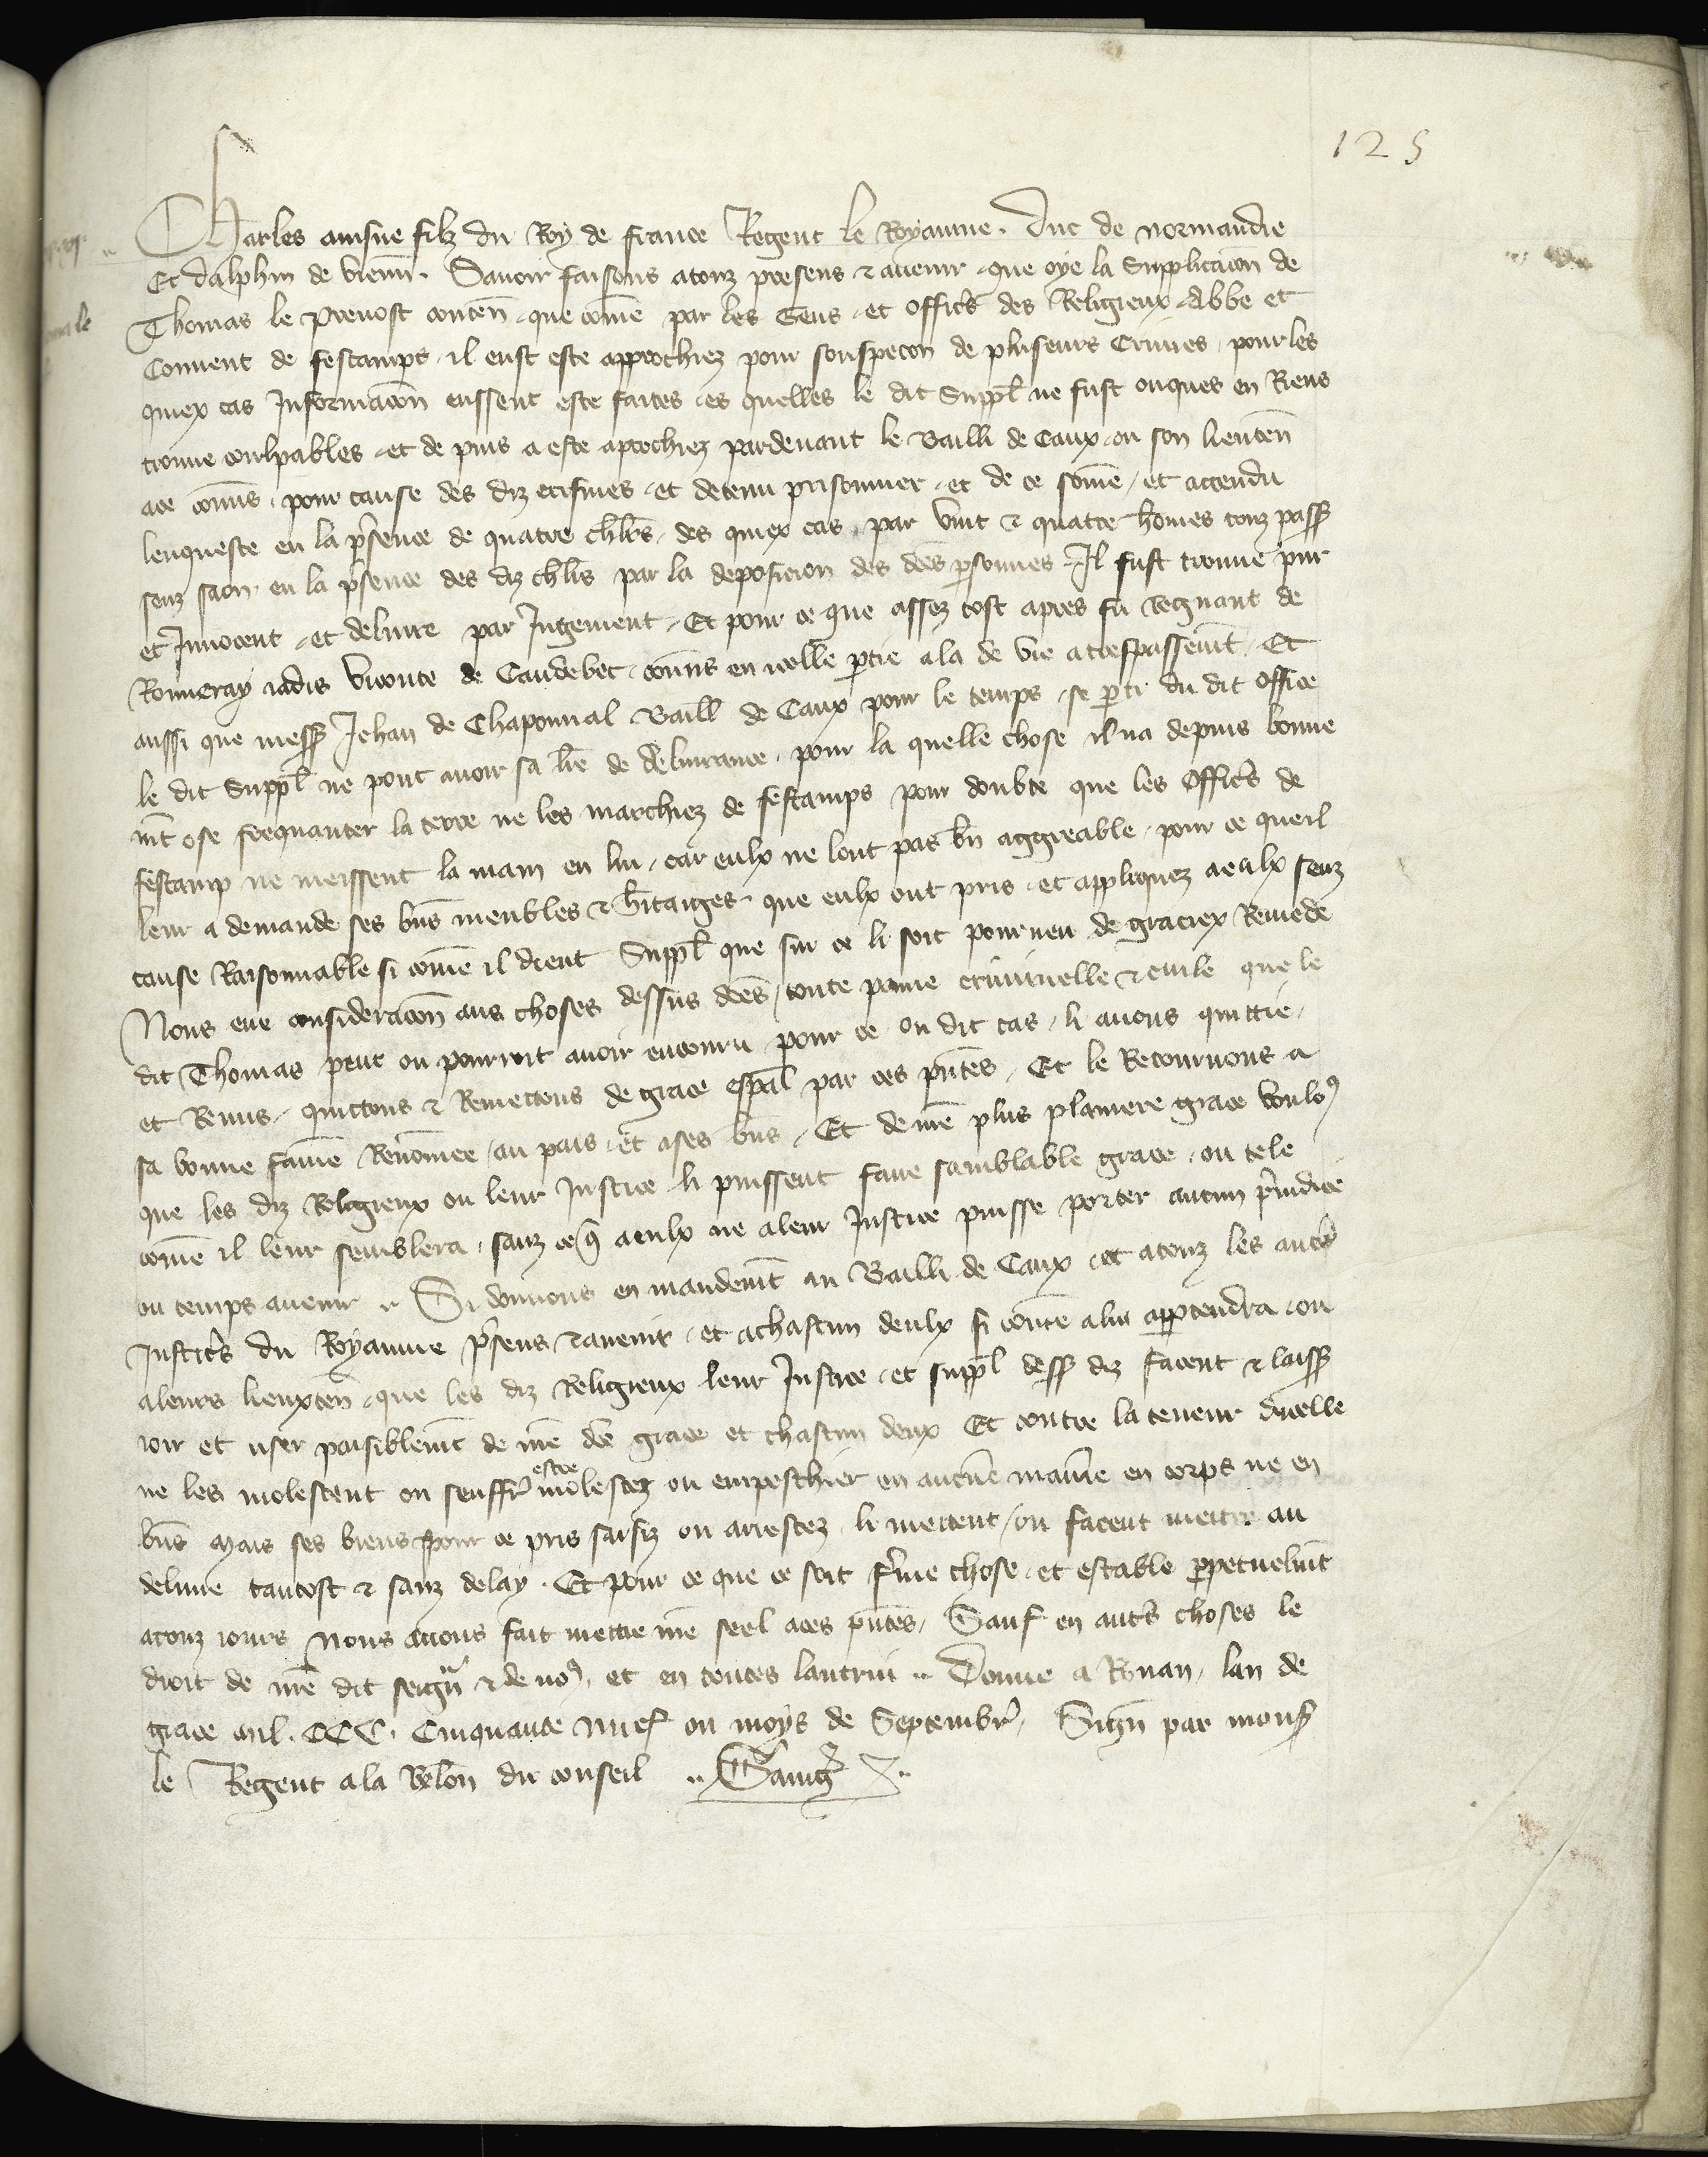 125
Charles ainsne filz du Roy de france Regent le Royaume. Duc de normandie
Et dalphin de vienn̄. Savoir faisons a touz presens & avenir que oye la Supplicacion de
Thomas le prevost conten̄ que com̄e par les Gens et Offic̄s des Religieux Abbe et
Convent de fescamps il eust este approchiez pour souspecon de pluseurs Crimes pour les
quiex cas Informac̄on eussent este faites es quelles le dit Supp̄l ne fust onques en Riens
trouve coulpables et de puis a este aprochiez pardevant le Bailli de Caux ou son lieuten̄
a ce com̄is pour cause des diz crismes et detenu prisonnier et de ce som̄e et attendu
lenqueste en la p̄sence de quatre ch̄l̄rs des quiex cas par vint & quatre hōmes touz pass̄
senz saon en la p̄sence des diz ch̄l̄rs par la deposicion des dc̄es p̄sonnes Il fust trouve pur
et Innocent et delivre par Jugement Et pour ce que assez tost apres fu Regnaut de
Romeray iadis viconte de Caudebec com̄is en icelle p̄tie ala de vie a trespassem̄t Et
aussi que mess̄ Jehan de Chaponval Baill̄ de Caux pour le temps se p̄ti du dit Office
le dit Supp̄l ne pout avoir sa lr̄e de delivrance pour la quelle chose il na depuis bonne
m̄t ose frequanter la terre ne les marchiez de fescamps pour doubte que les Offic̄s de
fescamp ne meissent la main en lui car eulx ne lont pas bn̄ aggreable pour ce que il
leur a demande ses bn̄s meubles & h̄itaiges que eulx ont pris et appliquez a eulx senz
cause Raisonnable si com̄e il dient Supp̄l que sur ce li soit pourveu de graciex Remede
Nous eue considerac̄on aus choses dessus dc̄es toute painne criminelle & civile que le
dit Thomas peut ou pourroit avoir encouru pour ce ou dit cas li avons quittie
et Remis quittons & Remettons de grace esp̄al par ces p̄n̄tes Et le Retournons a
sa bonne fam̄e Renom̄ee au pais et a ses bn̄s Et de nr̄e plus plainiere grace voulo9
que les diz Religieux ou leur Justice li puissent faire samblable grace ou tele
com̄e il leur semblera sanz ce q̄ a eulx ne a leur Justice puisse porter aucun p̄iudice
ou temps avenir Si donnons en mandem̄t au Bailli de Caux et a touz les autr̄s
Justic̄s du Royaume p̄sens & avenir et a chascun deulx si com̄e a lui app̄tendra ou
a leurs lieuxten̄ que les diz Religieux leur Justice et supp̄l dess̄ diz facent & laiss̄
ioir et user paisiblem̄t de nr̄e dc̄e grace et chascun deux Et contre la teneur dicelle
ne les molestent ou seuffr̄ estre molestez ou empeschier en aucun̄e manīe en corps ne en
bn̄s Mais ses biens pour ce pris saisiz ou arrestez li mettent ou facent mettre au
delivre tantost & sanz delay. Et pour ce que ce soit f̄me chose et estable p̄petuelm̄t
a touz iours Nous avons fait mettre nr̄e seel a ces p̄n̄tes Sauf en autr̄s choses le
droit de nr̄e dit seign̄ & de no9 et en toutes lautrui Donne a Rouan lan de
grace mil. CCC. Cinquante nuef ou moys de Septembr̄ Sign̄ par mons̄
le Regent a la Rel̄on du conseil